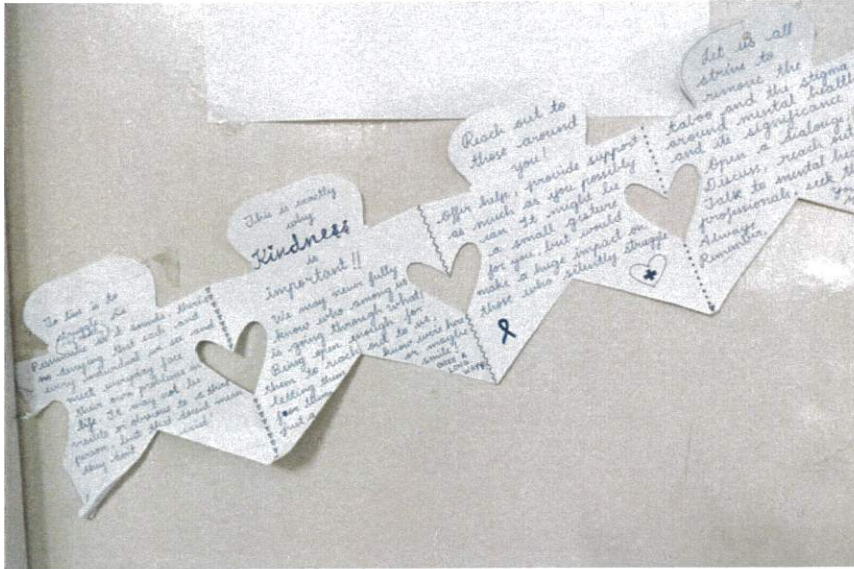 To live is to
struggle. As
Pessimistic as it sounds, there's
no denying that each and
every individual we see and
meet everyday face
their own problems in
life. It may not be
visible or obvious to a third
person, but that doesn't mean
they don't exist.
This is exactly
why
Kindness
is
important!!
We may never fully
know who among us
is going through what!
Being open enough for
them to reach out to us,
letting them know we're here
for them or maybe
Just a smile,
GOES A
LONG WAY!!
Reach out to
those around
you!
Offer help, provide support
as much as you possibly
can. It might be
a small gesture
for you but would
make a huge impact on
those who silently struggle
Let us all
strive to
remove the
taboo and the stigma
around mental health
and its significance
Open a dialogue!
Discuss, reach out
Talk to mental
professionals, seek
Always
Remember